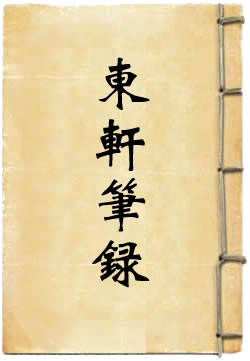 東軒筆録